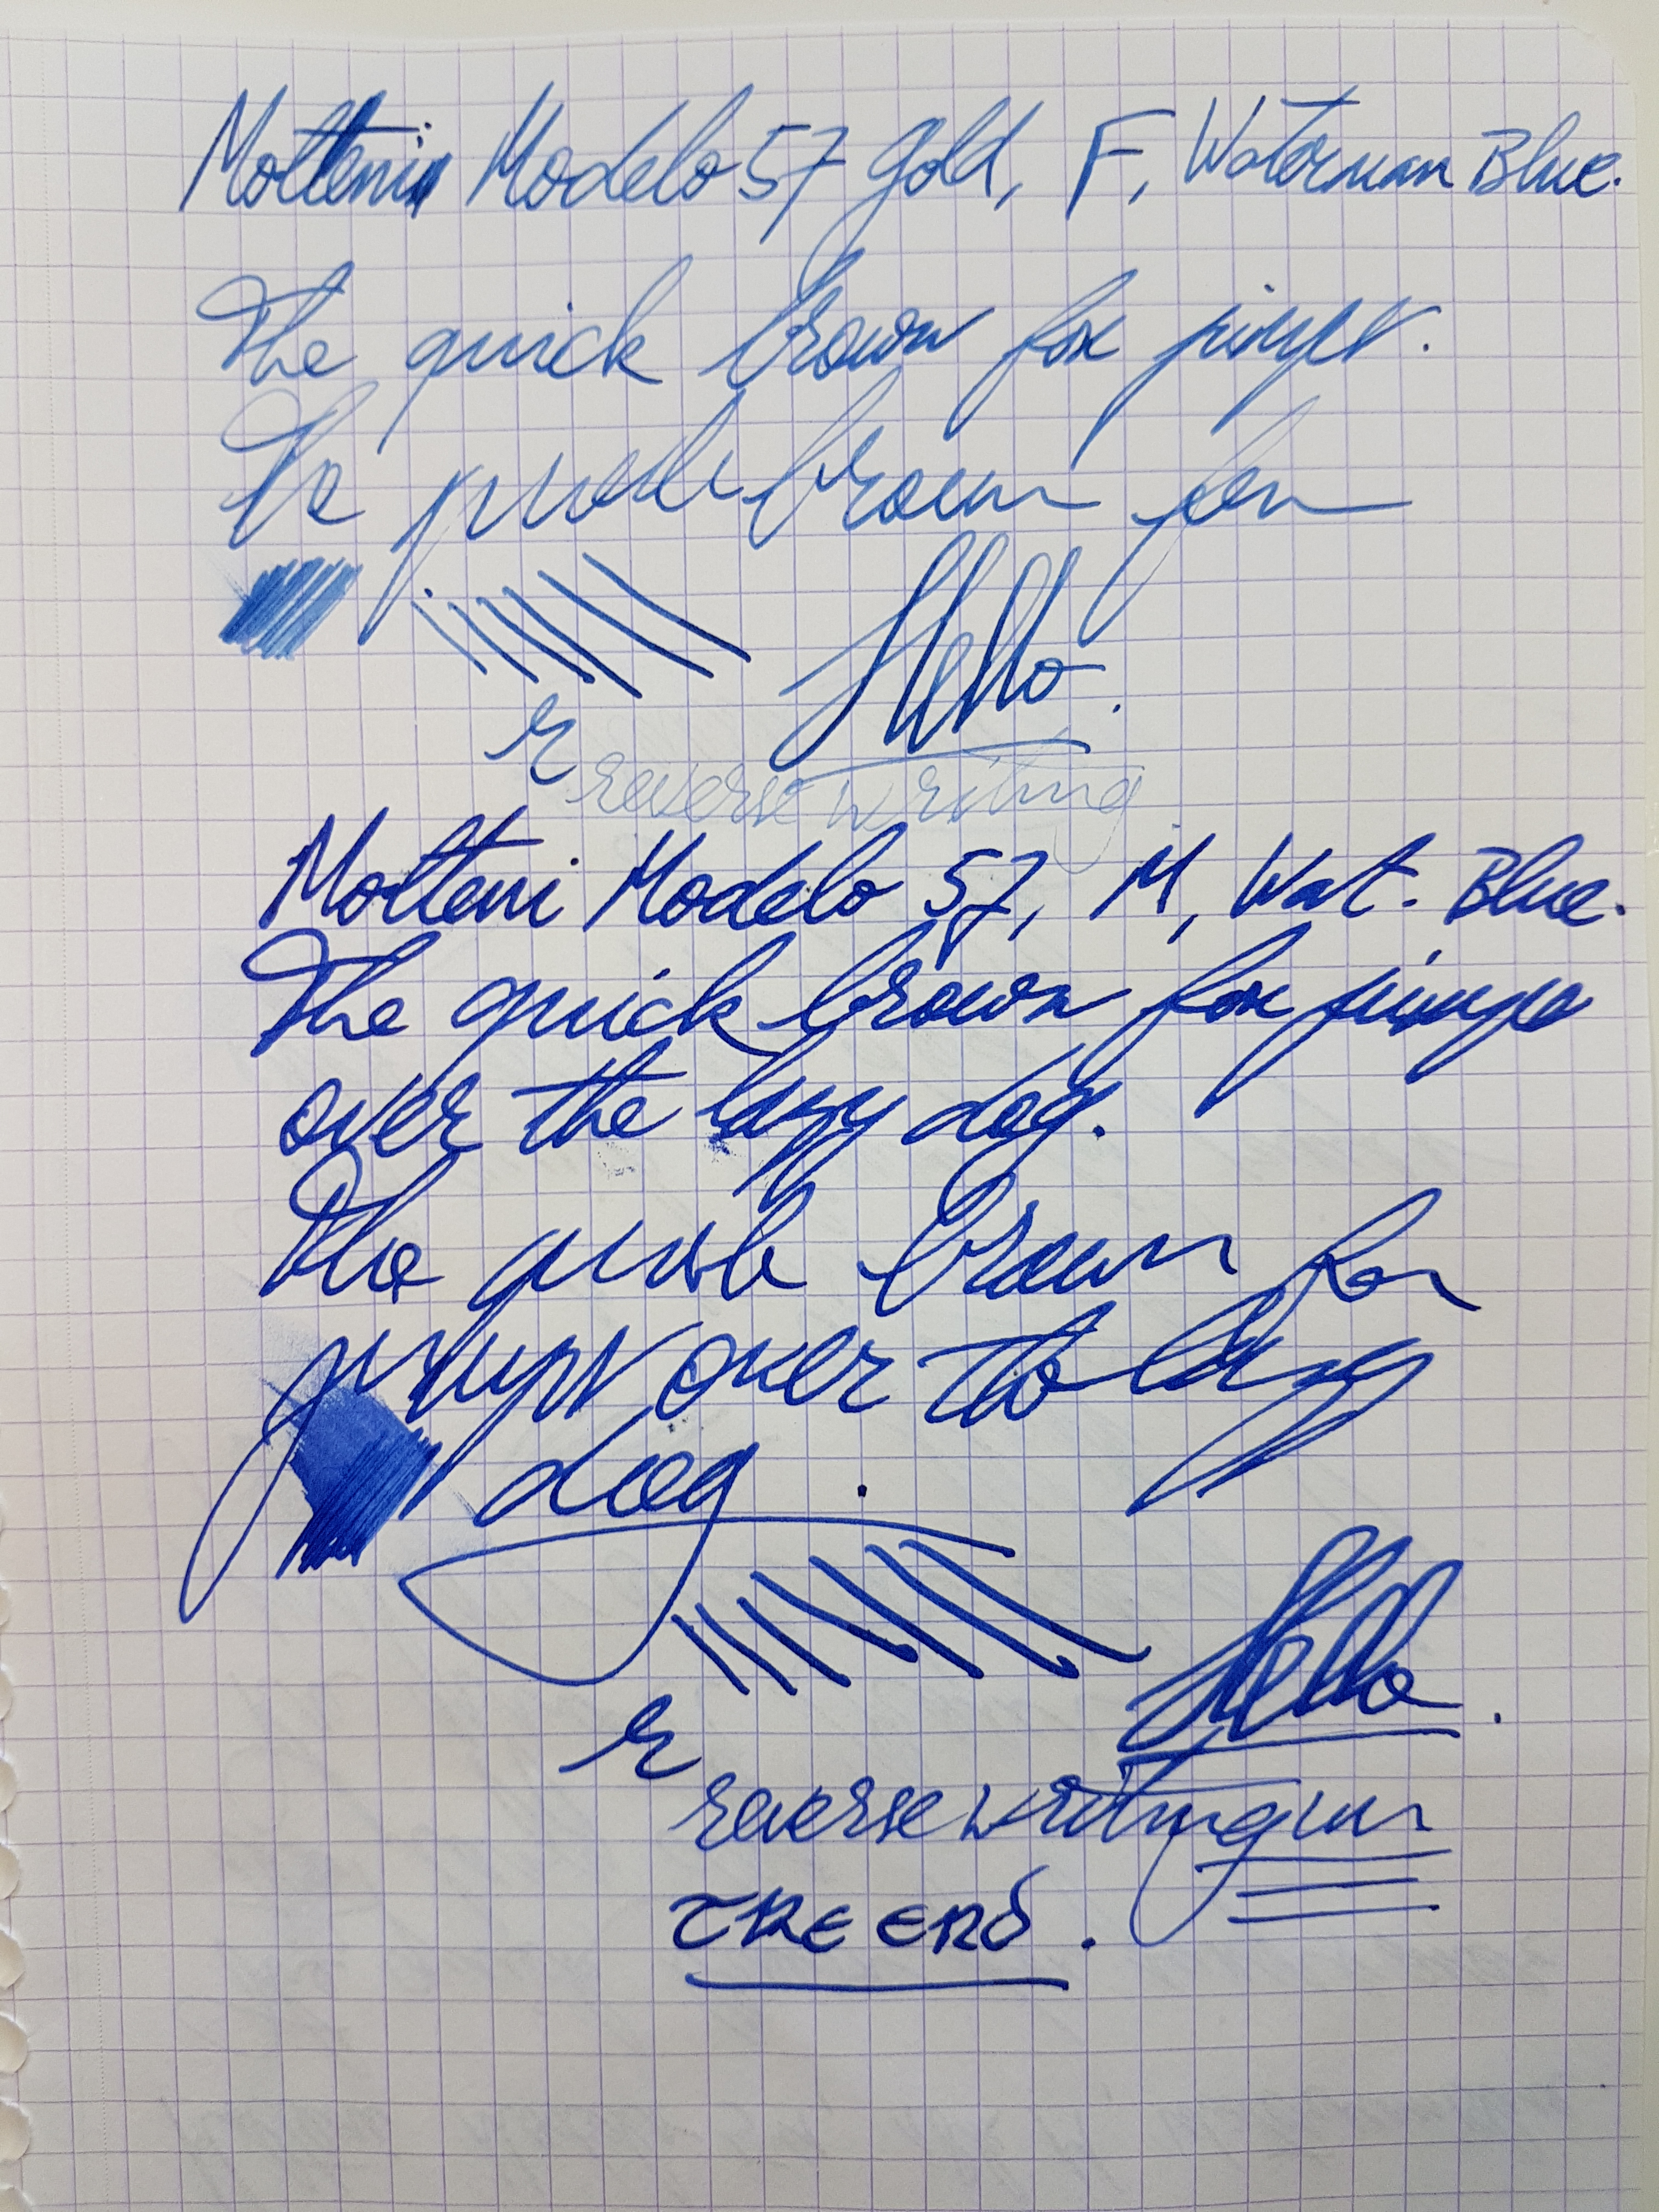 Molteni Modelo 57 gold, F, Waterman Blue.
The quick brown fox jumps.
The quick brown fox
Hello.
r reverse writing
Molteni Modelo 57, M, Wat. Blue.
The quick brown fox jumps
over the lazy dog.
The quick brown fox
jumps over the lazy
dog.
Hello.
r
reverse writing
THE END.